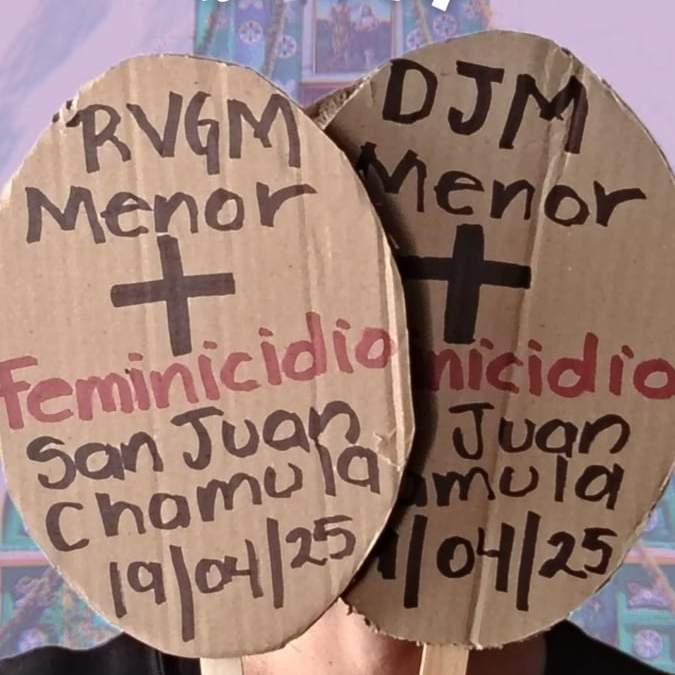 RVGM
Menor
+
Feminicidio
San Juan
Chamula
19/04/25
DJM
Menor
+
nicidio
Juan
amula
/04/25